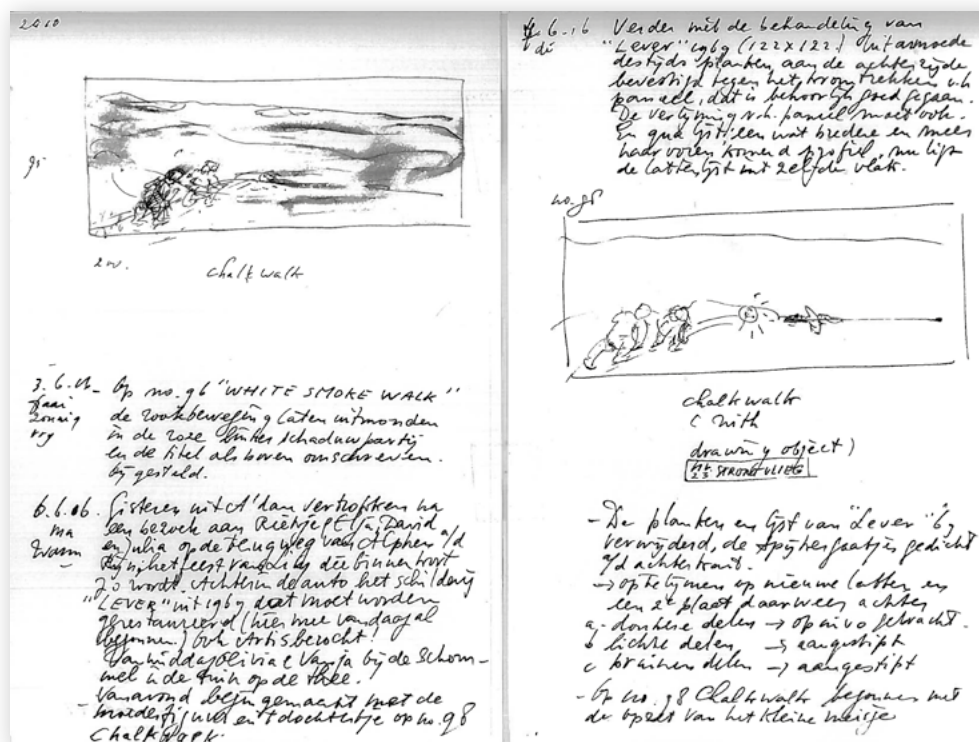 2010
95
200.
chalk walk
3.6.16 - Op no. 96 "WHITE SMOKE WALK"
fraai
zonnig
vry
de rookbeweging laten uitmonden
in de roze linker schaduwpartij
en de titel als boven omschreven.
bijgesteld.
6.6.16. Gisteren uit A'dam vertrokken na
ma
warm
een bezoek aan Rietje, David
en Julia op de terugweg van Alphen a/d
Rijn het feest van die binnenkort
wordt. Achterin de auto het schilderij
"LEVER" uit 1969 dat moet worden
gerestaureerd (hier mee vandaag al
begonnen.) Ook Artis bezocht!
Vanmiddag Olivia & Vanja bij de schom-
mel in de tuin op de thee.
Vanavond begin gemaakt met de
moederfiguur en 't dochtertje op no. 98
Chalkwalk.
7.6.16 Verder met de behandeling van
di
"Lever" 1969 (122x122.) Uit armoede
destijds planken aan de achterzijde
bevestigd tegen het kromtrekken v.h.
paneel, dat is behoorlijk goed gegaan.
De verlijming v.h. paneel moet ook.
En qua lijst: een wat bredere en meer
naar voren komend profiel, nu ligt
de lattenlijst in 't zelfde vlak.
no. 98
chalkwalk
(with
drawing object)
STRONTVLIEG
- De planken en lijst van "Lever" 69
verwijderd, de spijkergaatjes gedicht
a/d achterkant.
→ op te lijmen op nieuwe latten en
een 2e plaat daar weer achter
a - donkere delen → op nivo gebracht.
b lichte delen → aangestipt
c bruine delen → aangestipt
- Op no. 98 Chalkwalk begonnen met
de opzet van het kleine meisje